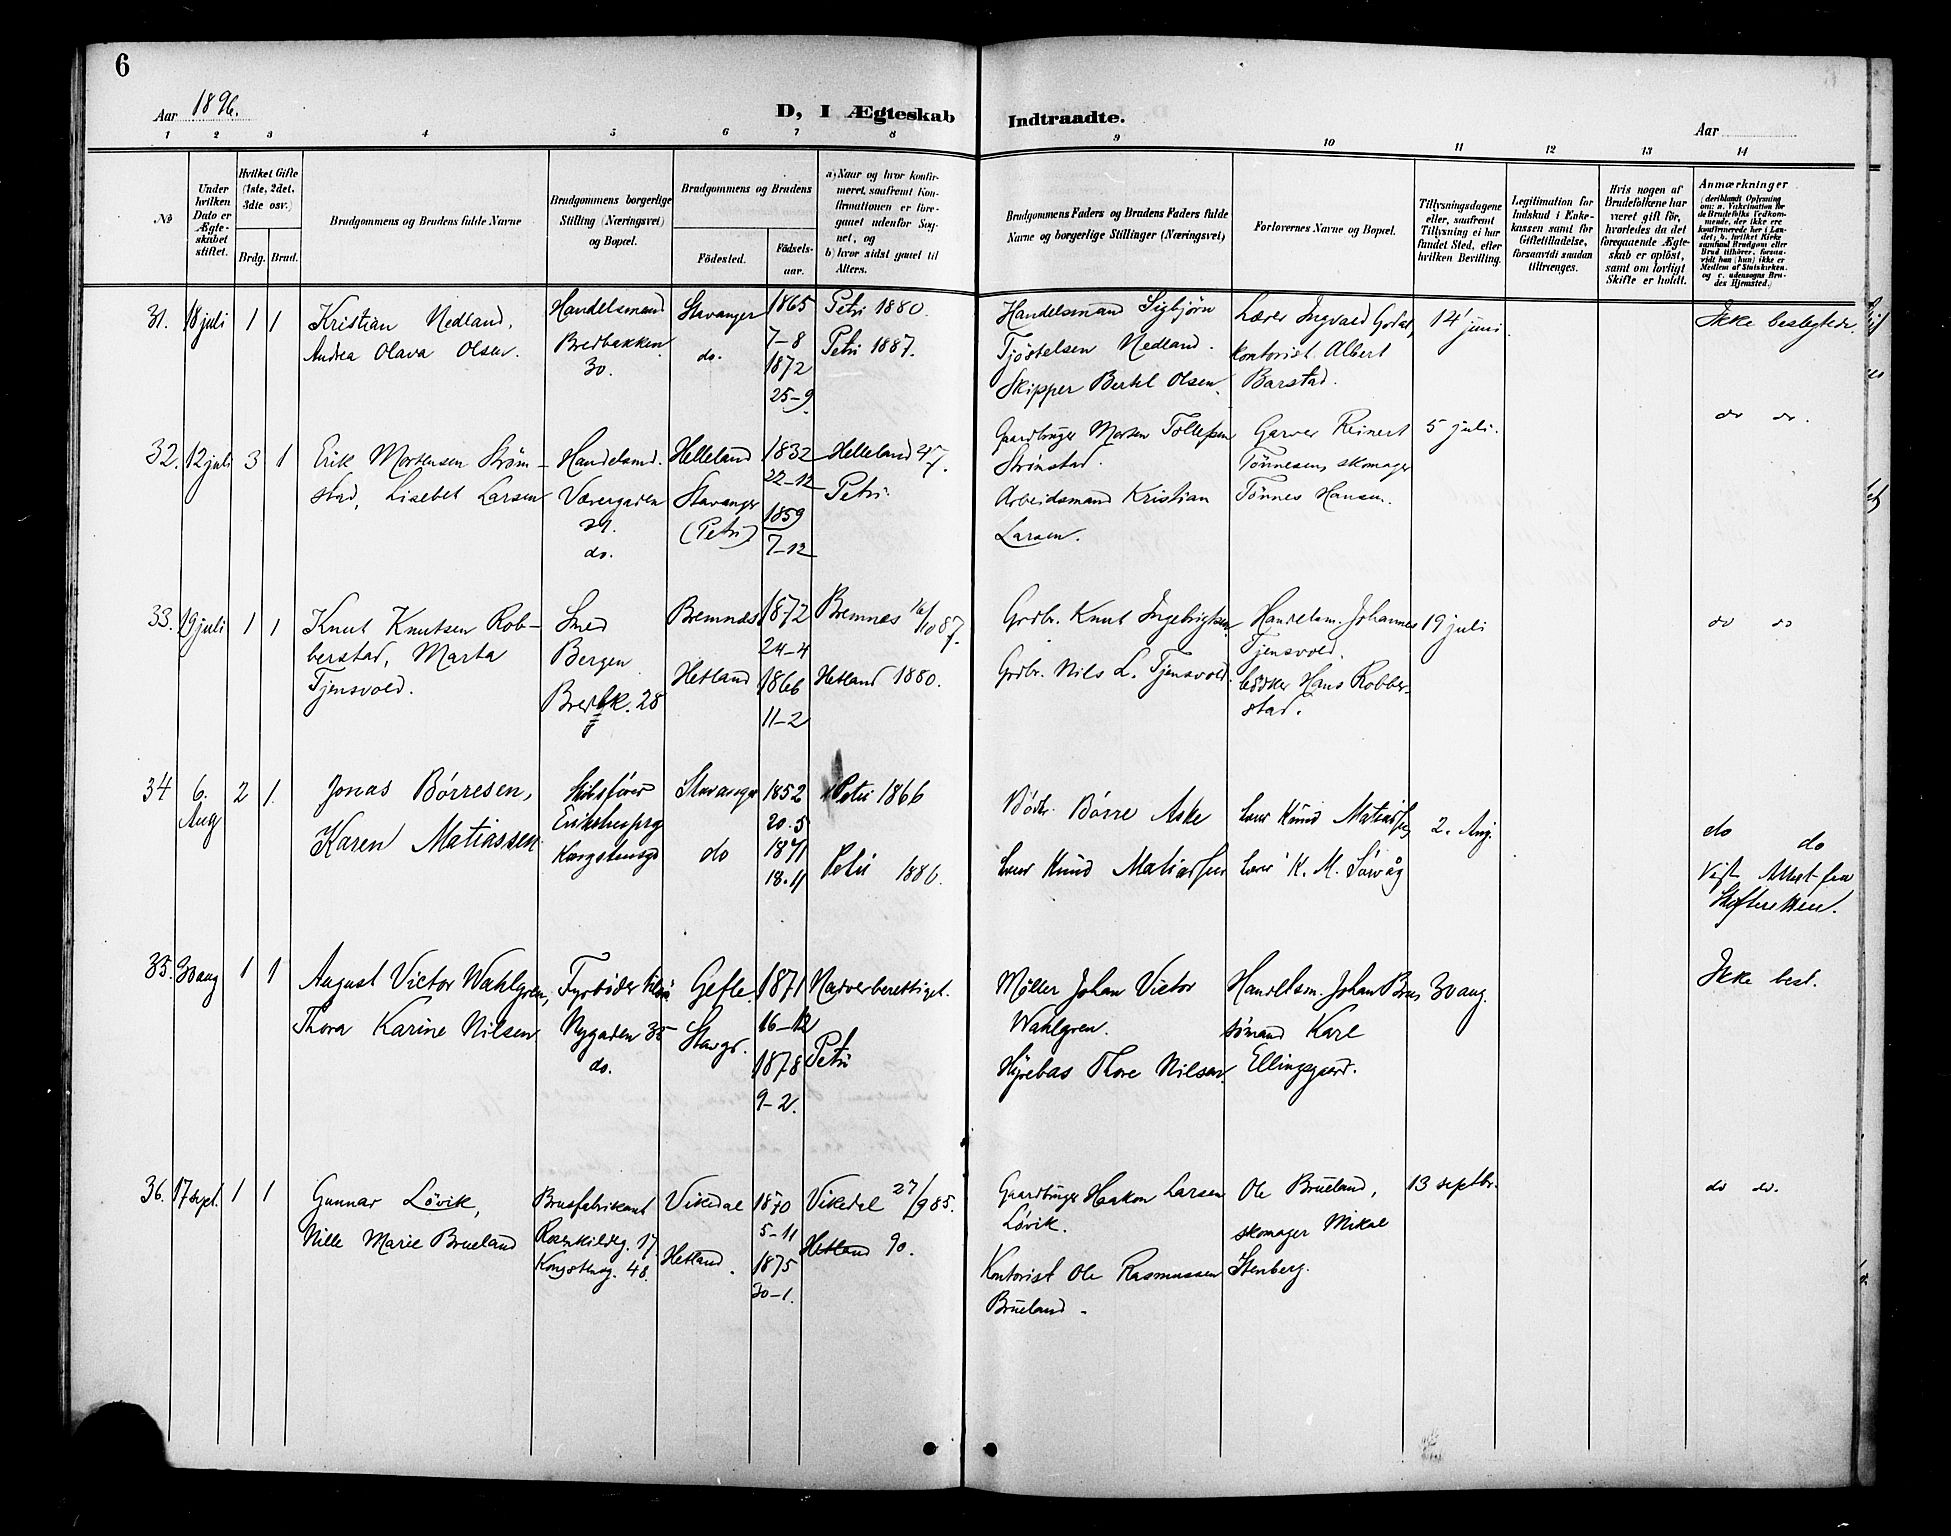 6
Aar 1896.
D, I Ægteskab Indtraadte.
Aar
1 2 3 4 5 6 7 8 9 10 11 12 13 14
No
Under hvilken Dato er Ægteskabet stiftet.
Hvilket Gifte (1ste, 2det, 3die osv.)
Brdg. Brud.
Brudgommens og Brudens fulde Navne
Brudgommens borgerlige Stilling (Næringsvei) og Bopæl.
Brudgommens og Brudens
Födested.
Födselsaar.
a) Naar og hvor konfirmeret, saafremt Konfirmationen er foregaaet udenfor Sognet, og
b) hvor sidst gaaet til Alters.
Brudgommens Faders og Brudens Faders fulde Navne og borgerlige Stillinger (Næringsvei)
Forlovernes Navne og Bopæl.
Tillysningsdagene eller, saafremt Tillysning ei har fundet Sted, efter hvilken Bevilling.
Legitimation for Indskud i Enkekassen samt for Giftetilladelse, forsaavidt saadan tiltrenges.
Hvis nogen af Brudefolkene har været gift för, hvorledes da det foregaaende Ægteskab er oplöst, samt om lovligt Skifte er holdt.
Anmærkninger
(deriblandt Oplysning om: a. Vakcination for de Brudefolks Vedkommende, der ikke ere konfirmerede her i Landet; b. hvilket Kirkesamfund Brudgom eller Brud tilhörer, forsaavidt han (hun) ikke er Medlem af Statskirken, og c. udensogns Brudes Hjemsted.)
31. 18 juli 1 1
Kristian Nedland,
Andrea Olava Olsen.
Handelsmand
Bredbakken
30.
Stavanger
do.
1865
7-8
1872
25-9
Petri 1880.
Petri 1887.
Handelsmand Sigbjørn
Tjöstelsen Nedland.
Skipper Bertel Olsen.
Lærer Ingvald
Kontorist Albert
Barstad.
14 juni
Ikke beslegtede.
32. 12 juli 3 1
Erik Mortensen Strøm-
stad, Lisebet Larsen
Handelsmd.
Værergaden
do.
Helleland
Stavanger
(Petri)
1832
22-12
1859
7-12
Helleland 47.
Petri
Gaardbruger Morten Tollefsen
Strömstad.
Arbeidsmand Kristian
Larsen.
Garver Reinert
Tönnesen, skomager
Tönnes Hansen.
5 juli.
do do.
33. 19 juli 1 1
Knut Knutsen Rob-
berstad, Marta
Tjensvold.
Smed
Bergen
Bredbk. 28
Bremnes
Hetland
1872
24-4
1866
11-2
Bremnes 16/10 87.
Hetland 1880.
Grdbr. Knut Ingebrigtsen
Grdbr. Nils L. Tjensvold.
Handelsm. Johannes
Tjensvold.
bödker Hans Robber-
stad.
19 juli
do do
34 6. Aug 2 1.
Jonas Børresen,
Karen Matiassen
Skibsfører
Kongstensgd
Stavanger
do
1852
20.5
1871
18.11
Petri 1866
Petri 1886.
Bødk. Børre Aske
Knud Matiassen
Knud Matiassen
K. M. Sørvåg
2. Aug.
do do
Vist Attest fra
Skifteretten.
35. 30 aug 1 1
August Victor Wahlgren,
Thora Karine Nilsen
Fyrböder
Nygaden 35
do.
Gefle.
Stavgr.
1871
16-12
1878
9-2.
Nadverberettiget.
Petri
Møller Johan Victor
Wahlgren.
Hyrebas Thore Nilsen.
Handelsm. Johan Brus
sömand Karl
Ellingsgaard.
30 aug.
Ikke besl.
36. 17 sept. 1 1
Gunnar Lövik,
Nille Marie Brueland
Brusfabrikant
Rosenkildeg. 17.
Kongstensg. 48.
Vikedal
Hetland.
1870
5-11
1875
30-1.
Vikedal 27/9 85.
Hetland 90.
Gaardbruger Haakon Larsen
Lövik.
Kontorist Ole Rasmussen
Brueland.
Ole Brueland,
skomager Mikal
Stenberg.
13 septbr.
do do.